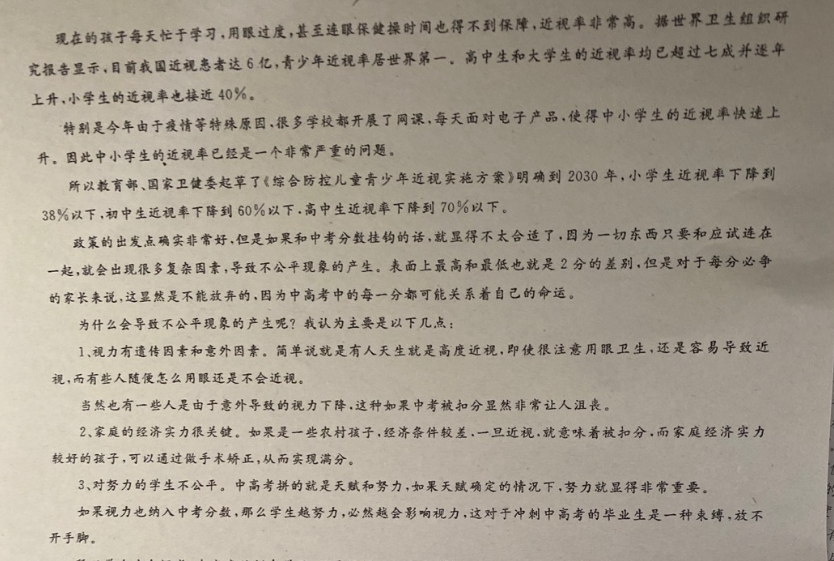 现在的孩子每天忙于学习,用眼过度,甚至连眼保健操时间也得不到保障,近视率非常高。据世界卫生组织研
究报告显示,目前我国近视患者达 6 亿,青少年近视率居世界第一。高中生和大学生的近视率均已超过七成并逐年
上升,小学生的近视率也接近 40%。
特别是今年由于疫情等特殊原因,很多学校都开展了网课,每天面对电子产品,使得中小学生的近视率快速上
升。因此中小学生的近视率已经是一个非常严重的问题。
所以教育部、国家卫健委起草了《综合防控儿童青少年近视实施方案》明确到 2030 年,小学生近视率下降到
38%以下,初中生近视率下降到 60%以下,高中生近视率下降到 70%以下。
政策的出发点确实非常好,但是如果和中考分数挂钩的话,就显得不太合适了,因为一切东西只要和应试连在
一起,就会出现很多复杂因素,导致不公平现象的产生。表面上最高和最低也就是 2 分的差别,但是对于每分必争
的家长来说,这显然是不能放弃的,因为中高考中的每一分都可能关系着自己的命运。
为什么会导致不公平现象的产生呢?我认为主要是以下几点:
1、视力有遗传因素和意外因素。简单说就是有人天生就是高度近视,即使很注意用眼卫生,还是容易导致近
视,而有些人随便怎么用眼还是不会近视。
当然也有一些人是由于意外导致的视力下降,这种如果中考被扣分显然非常让人沮丧。
2、家庭的经济实力很关键。如果是一些农村孩子,经济条件较差,一旦近视,就意味着被扣分,而家庭经济实力
较好的孩子,可以通过做手术矫正,从而实现满分。
3、对努力的学生不公平。中高考拼的就是天赋和努力,如果天赋确定的情况下,努力就显得非常重要。
如果视力也纳入中考分数,那么学生越努力,必然越会影响视力,这对于冲刺中高考的毕业生是一种束缚,放不
开手脚。